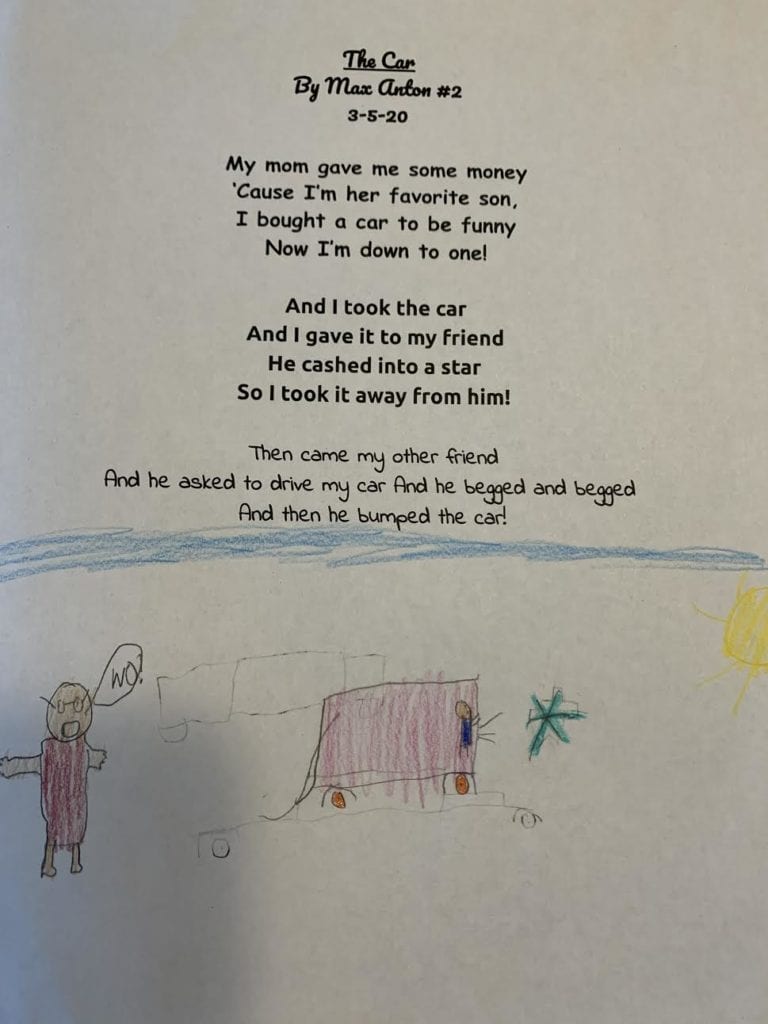 The Car
By Max Anton #2
3-5-20
My mom gave me some money
'Cause I'm her favorite son,
I bought a car to be funny
Now I'm down to one!
And I took the car
And I gave it to my friend
He cashed into a star
So I took it away from him!
Then came my other friend
And he asked to drive my car And he begged and begged
And then he bumped the car!
NO!